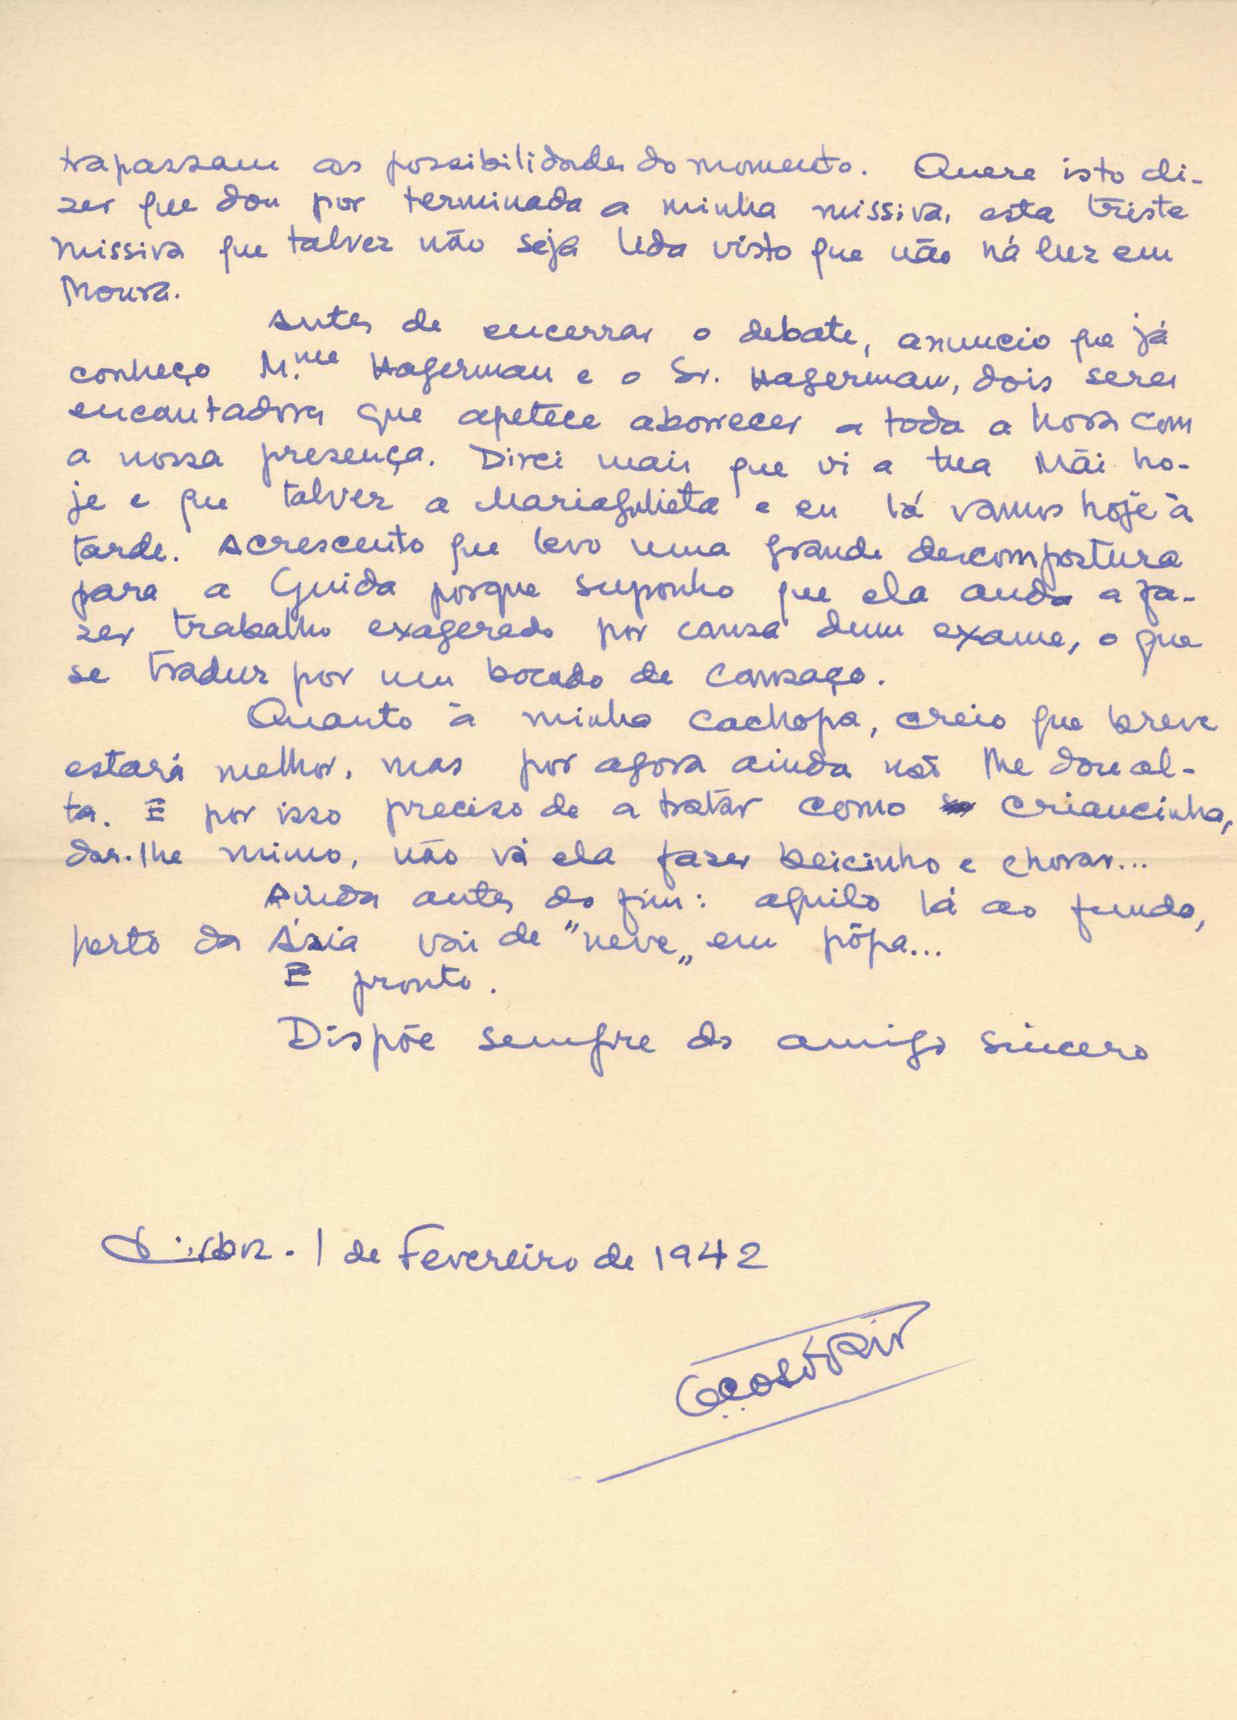 trapassam as possibilidades do momento. Quere isto di-
zer que dou por terminada a minha missiva, esta triste
missiva que talvez não seja lida visto que não há luz em
Moura.
Antes de encerrar o debate, anuncio que já
conheço M.me Hagerman e o Sr. Hagerman, dois seres
encantadores que apetece aborrecer a toda a hora com
a nossa presença. Direi mais que vi a tua Mãi ho-
je e que talvez a Mariajulieta e eu lá vamos hoje à
tarde. Acrescento que levo uma grande descompostura
para a Guida porque suponho que ela anda a fa-
zer trabalho exagerado por causa dum exame, o que
se traduz por um bocado de cansaço.
Quanto à minha cachopa, creio que breve
estará melhor, mas por agora ainda não lhe dou al-
ta. E por isso preciso de a tratar como criancinha,
dar-lhe mimo, não vá ela fazer beicinho e chorar...
Ainda antes do fim: aquilo lá ao fundo,
perto da Ásia vai de "neve" em pôpa...
E pronto.
Dispõe sempre do amigo sincero
Lisboa. 1 de Fevereiro de 1942